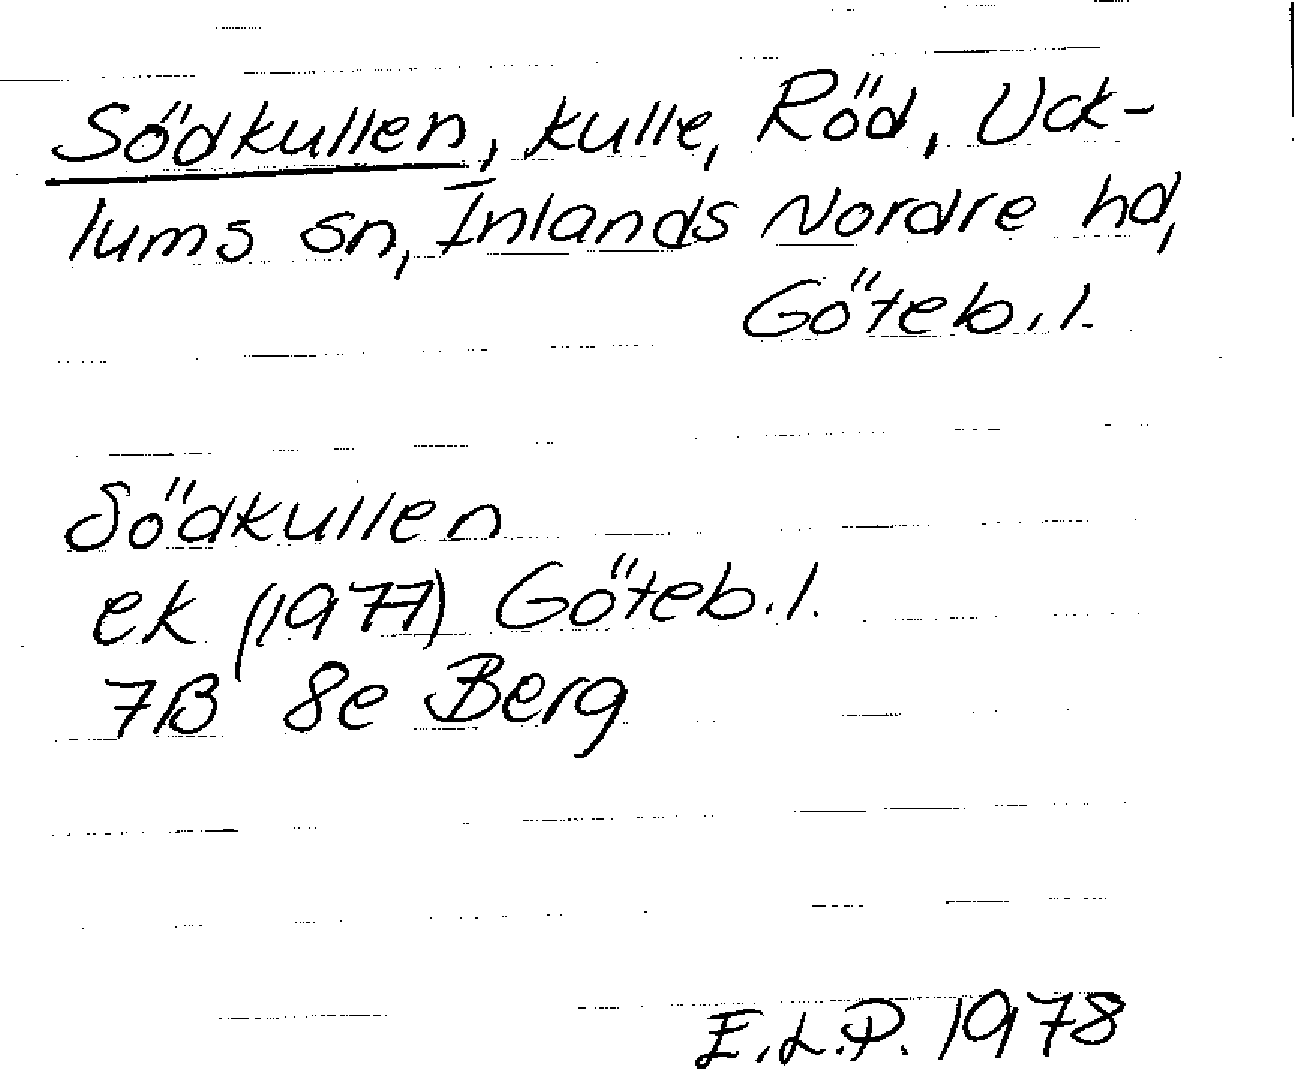 Södkullen, kulle, Röd, Uck-
lums sn, Inlands Nordre hd,
Göteb. l.
Södkullen
ek (1977) Göteb. l.
7B 8e Berg
E.L.P. 1978